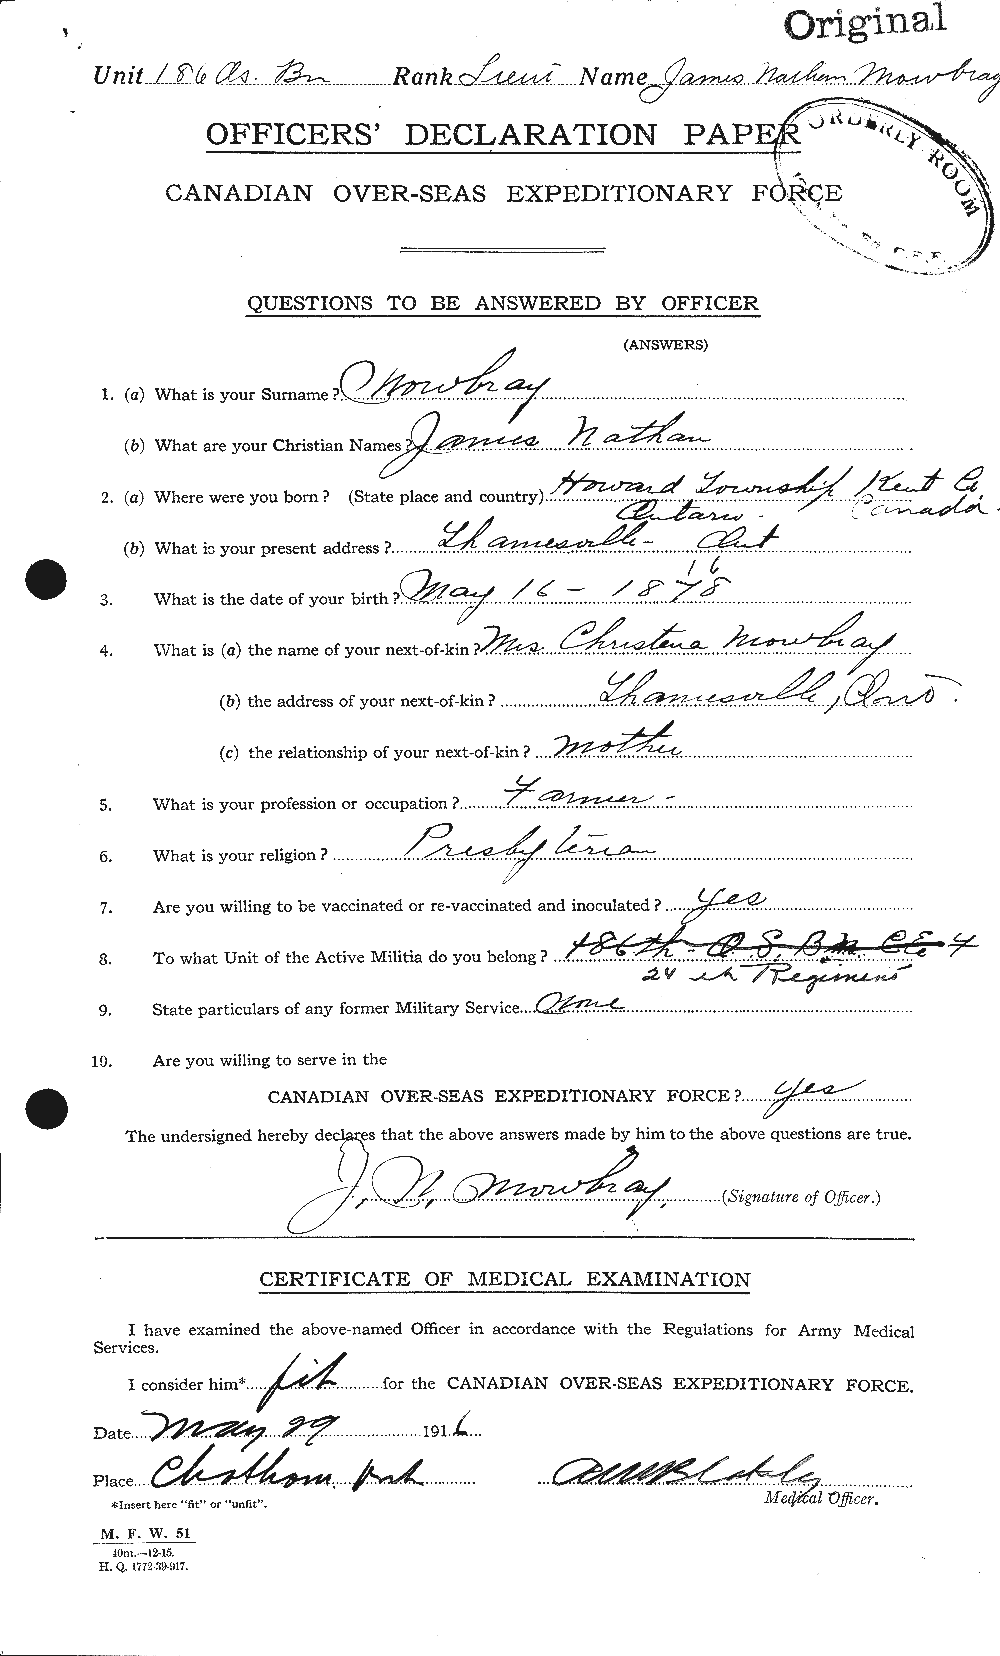 Original
Unit 186 Os. Bn Rank Lieut Name James Nathan Mowbray
ORDERLY ROOM
C.E.F.
OFFICERS' DECLARATION PAPER
CANADIAN OVER-SEAS EXPEDITIONARY FORCE
QUESTIONS TO BE ANSWERED BY OFFICER
(ANSWERS)
1. (a) What is your Surname? Mowbray
(b) What are your Christian Names? James Nathan
2. (a) Where were you born? (State place and country) Howard Township Kent Co
Ontario - Canada.
(b) What is your present address? Thamesville - Ont
16
3. What is the date of your birth? May 16 - 1878
4. What is (a) the name of your next-of-kin? Mrs. Christena Mowbray
(b) the address of your next-of-kin? Thamesville, Ont.
(c) the relationship of your next-of-kin? mother
5. What is your profession or occupation? Farmer -
6. What is your religion? Presbyterian
7. Are you willing to be vaccinated or re-vaccinated and inoculated? yes
8. To what Unit of the Active Militia do you belong? 186th - O.S. Bn. C.E.F
24 th Regiment
9. State particulars of any former Military Service None
10. Are you willing to serve in the
CANADIAN OVER-SEAS EXPEDITIONARY FORCE? yes
The undersigned hereby declares that the above answers made by him to the above questions are true.
J. N. Mowbray. (Signature of Officer.)
CERTIFICATE OF MEDICAL EXAMINATION
I have examined the above-named Officer in accordance with the Regulations for Army Medical
Services.
I consider him* fit for the CANADIAN OVER-SEAS EXPEDITIONARY FORCE.
Date May 29 1916
Place Chatham, Ont
*Insert here "fit" or "unfit".
Medical Officer.
M. F. W. 51
40m.-12-15.
H. Q. 1772-39-917.